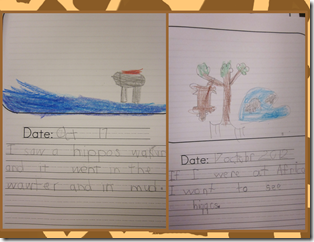 Date: Oct 17
I saw a hippos
and it went in the
wawter and in mud.
Date:
If I were at
I want to see